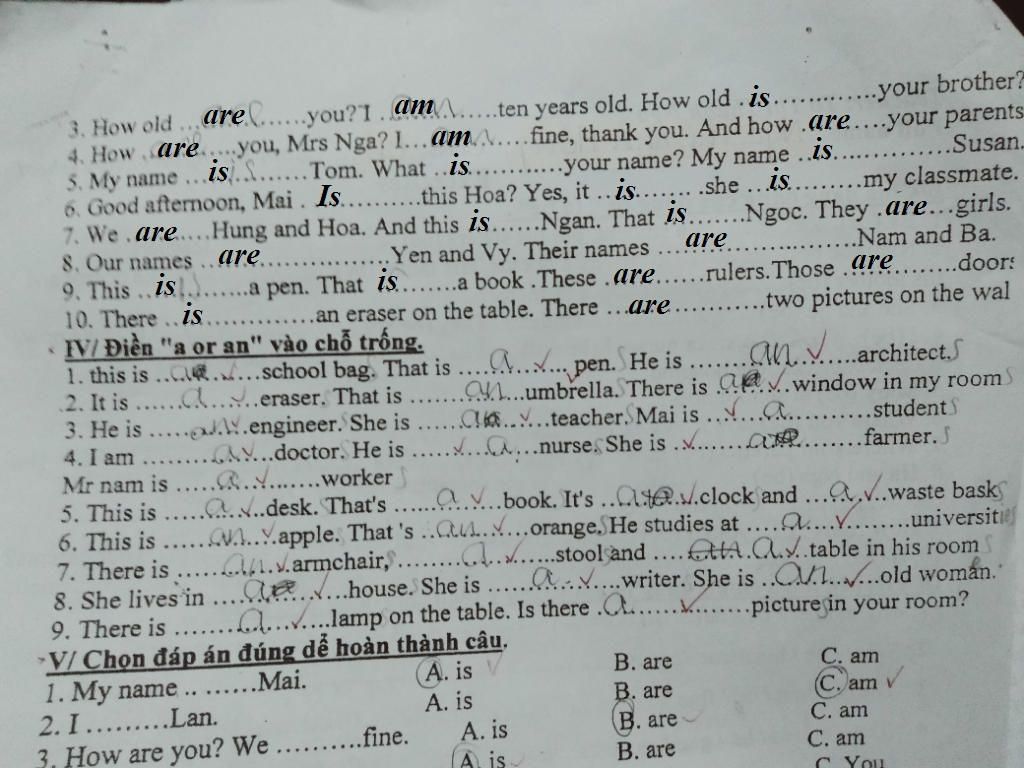 3. How old ...are.......you? I ..am.......ten years old. How old .is.............your brother?
4. How ..are.....you, Mrs Nga? I...am.......fine, thank you. And how .are.....your parents
5. My name ...is.........Tom. What ..is............your name? My name ..is...............Susan.
6. Good afternoon, Mai . Is...........this Hoa? Yes, it ..is....... .she ...is..........my classmate.
7. We .are.....Hung and Hoa. And this is......Ngan. That is.......Ngoc. They .are...girls.
8. Our names ..are.................Yen and Vy. Their names ...are.................Nam and Ba.
9. This ..is..........a pen. That is........a book .These .are.......rulers.Those .are..........doors
10. There ..is..............an eraser on the table. There ...are............two pictures on the wal
IV/ Điền "a or an" vào chỗ trống.
1. this is ..a......school bag. That is ....a.......pen. He is .......an......architect.
2. It is ......a.....eraser. That is .......an...umbrella. There is .a.....window in my room
3. He is .....an..engineer. She is ......a......teacher. Mai is .....a...........student
4. I am .........a..doctor. He is ........a...nurse. She is ........a.........farmer.
Mr nam is .....a.........worker
5. This is .....a....desk. That's ......a....book. It's ..a....clock and ...a...waste bask
6. This is ......an..apple. That 's ..an.....orange. He studies at ....a...........universiti
7. There is ......an..armchair, .........a.......stool and .... a..table in his room
8. She lives in ....a........house. She is ......a......writer. She is ..an.....old woman.
9. There is .........a......lamp on the table. Is there .a..............picture in your room?
V/ Chọn đáp án đúng dể hoàn thành câu.
1. My name .. .......Mai. A. is B. are C. am
2. I ..........Lan. A. is B. are C. am
3. How are you? We ..........fine. A. is B. are C. am
A. is B. are C. am
C. You